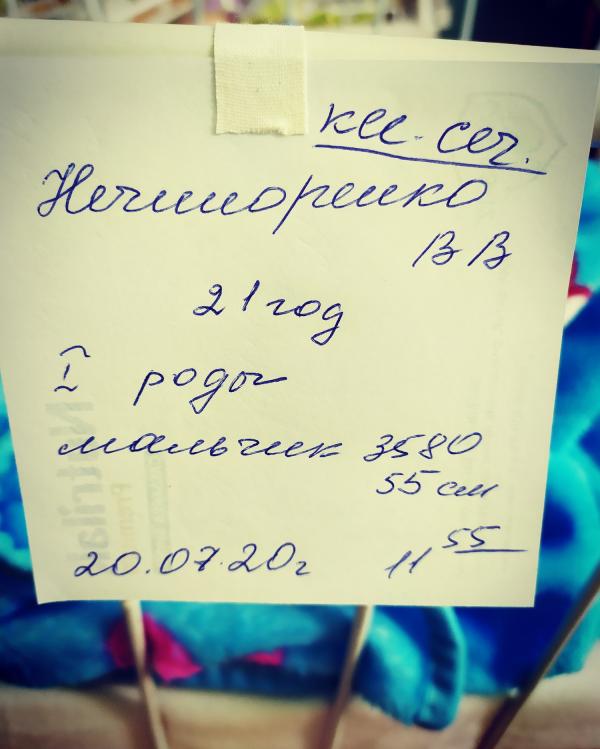 кес. сеч.
Нечипоренко
В В
21 год
I роды
мальчик 3580
55 см
20.07.20г 11 55
Nutrilak
Premium